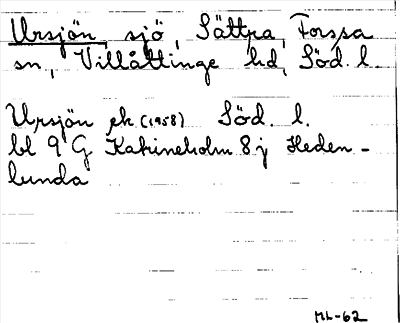 Ursjön, sjö, Sättra, Forssa
sn, Villåttinge hd, Söd. l.
Ursjön ek (1958) Söd. l.
bl 9 G Katrineholm 8 j Heden-
lunda
ML-62